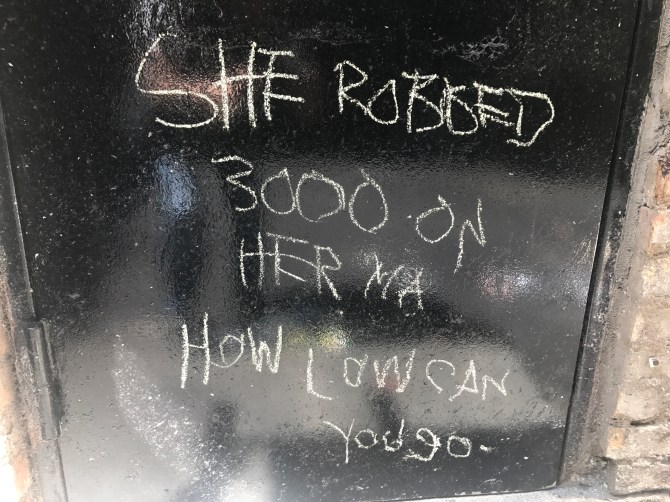 SHE ROBBED
3000 ON
HER MA
HOW LOW CAN
YOU GO.